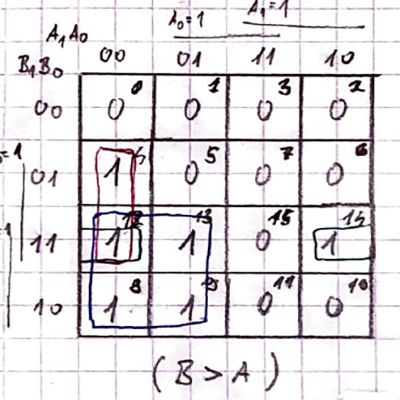 A₀=1 A₁=1
A₁A₀ 00 01 11 10
B₁B₀
00 0 0 0 1 0 3 0 2
=1
01 1 4 0 5 0 7 0 6
11 1 12 1 13 0 15 1 14
10 1 8 1 9 0 11 0 10
(B > A)